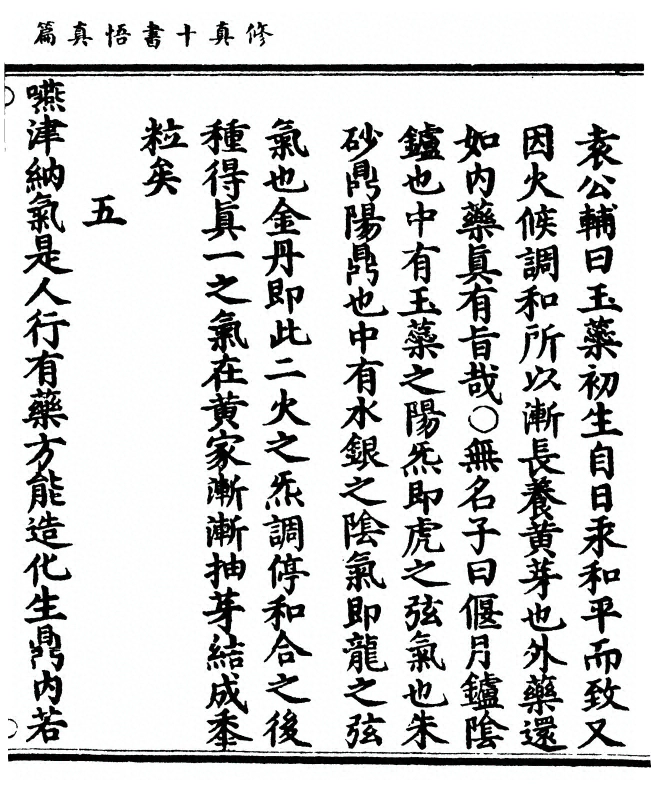 修真十書悟真篇
袁公輔曰玉蘂初生自日汞和平而致又
因火候調和所以漸長養黄芽也外藥還
如内藥眞有旨哉○無名子曰偃月鑪陰
鑪也中有玉蘂之陽炁即虎之弦氣也朱
砂鼎陽鼎也中有水銀之陰氣即龍之弦
氣也金丹即此二火之炁調停和合之後
種得眞一之氣在黄家漸漸抽芽結成黍
粒矣
五
嚥津納氣是人行有藥方能造化生鼎内若